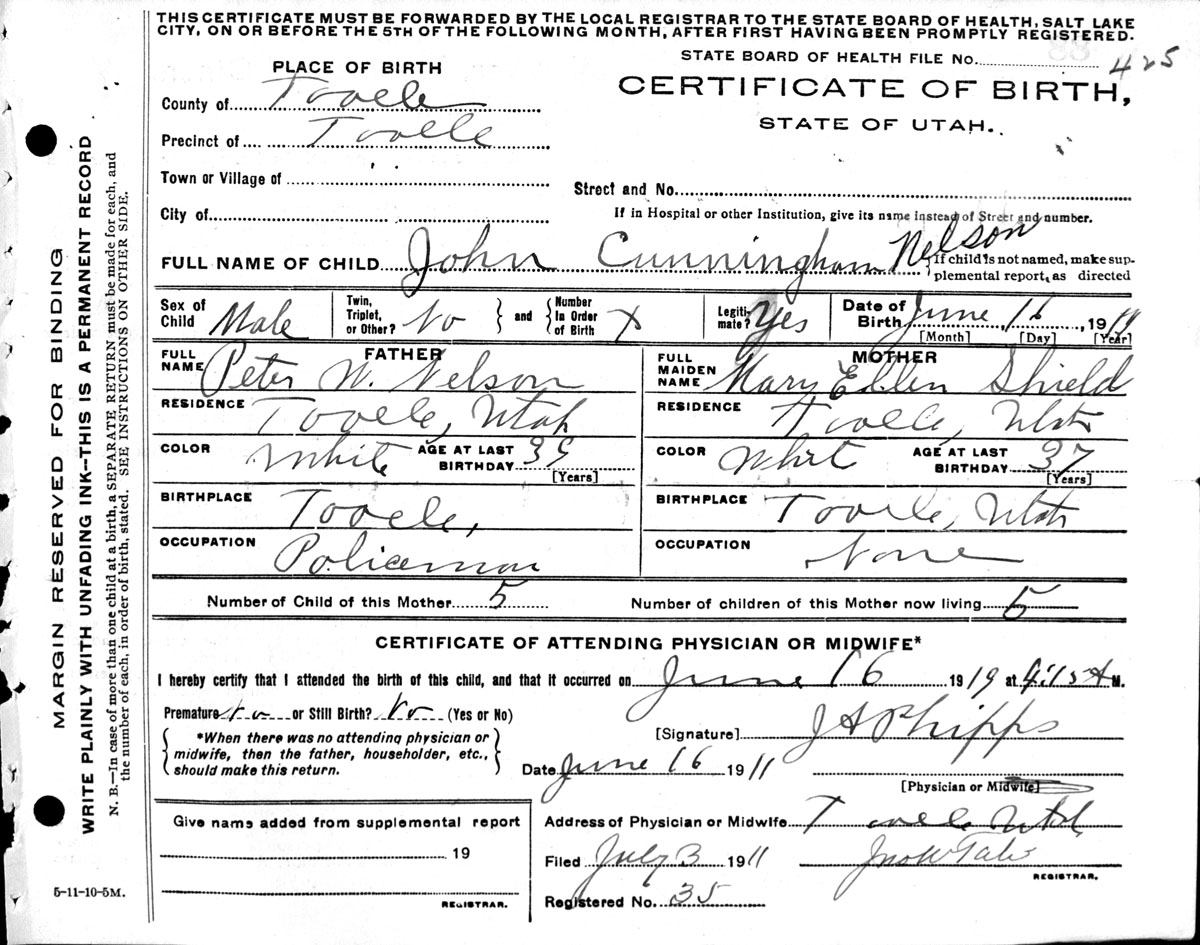 THIS CERTIFICATE MUST BE FORWARDED BY THE LOCAL REGISTRAR TO THE STATE BOARD OF HEALTH, SALT LAKE
CITY, ON OR BEFORE THE 5TH OF THE FOLLOWING MONTH, AFTER FIRST HAVING BEEN PROMPTLY REGISTERED.
88
STATE BOARD OF HEALTH FILE No. 425
PLACE OF BIRTH
CERTIFICATE OF BIRTH,
STATE OF UTAH.
County of Tooele
Precinct of Tooele
Town or Village of
Street and No.
City of
If in Hospital or other Institution, give its name instead of Street and number.
FULL NAME OF CHILD John Cunningham Nelson
{If child is not named, make sup-
plemental report, as directed
Sex of Child Male
Twin, Triplet, or Other? No } and { Number In Order of Birth X
Legiti-mate? Yes
Date of Birth June, 16, 1911
[Month] [Day] [Year]
FATHER
FULL NAME Peter W. Nelson
MOTHER
FULL MAIDEN NAME Mary Ellen Shield
RESIDENCE Tooele, Utah
RESIDENCE Tooele, Utah
COLOR White AGE AT LAST BIRTHDAY 39 [Years]
COLOR White AGE AT LAST BIRTHDAY 37 [Years]
BIRTHPLACE Tooele,
BIRTHPLACE Tooele, Utah
OCCUPATION Policeman
OCCUPATION None
Number of Child of this Mother 5 Number of children of this Mother now living 5
CERTIFICATE OF ATTENDING PHYSICIAN OR MIDWIFE*
I hereby certify that I attended the birth of this child, and that it occurred on June 16 1919 at A M.
Premature No or Still Birth? No (Yes or No)
{ *When there was no attending physician or
midwife, then the father, householder, etc.,
should make this return. }
[Signature] J A Phipps
Date June 16 1911
[Physician or Midwife]
Give name added from supplemental report
19
REGISTRAR.
Address of Physician or Midwife Tooele Utah
Filed July 3 1911
REGISTRAR.
Registered No. 35
5-11-10-5M.
MARGIN RESERVED FOR BINDING
WRITE PLAINLY WITH UNFADING INK—THIS IS A PERMANENT RECORD
N. B.—In case of more than one child at a birth, a SEPARATE RETURN must be made for each, and
the number of each, in order of birth, stated. SEE INSTRUCTIONS ON OTHER SIDE.